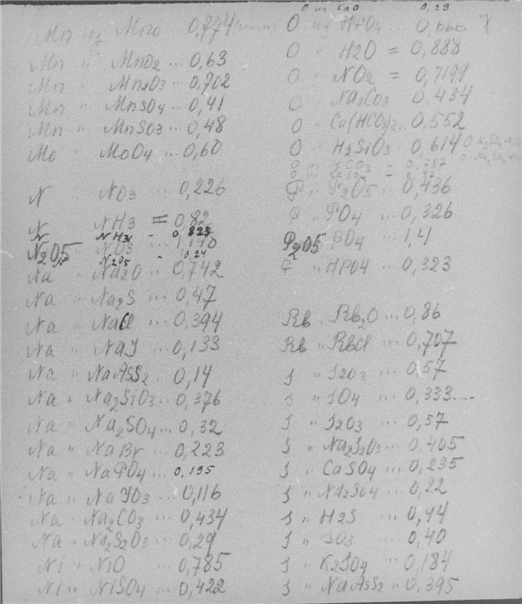 Mn из MnO ... 0,774
Mn " MnO2 ... 0,63
Mn " Mn2O3 ... 0,702
Mn " MnSO4 ... 0,41
Mn " MnSO3 ... 0,48
Mo " MoO4 ... 0,60
N NO3 ... 0,226
N NH3 = 0,82
N NH3 - 0,823
N2O5
N N2O5 -
Na " Na2O ... 0,742
Na " Na2S ... 0,47
Na " NaCl ... 0,394
Na " NaJ ... 0,133
Na " NaAsS2 ... 0,14
Na " Na2SiO3 ... 0,376
Na " Na2SO4 ... 0,32
Na " NaBr ... 0,223
Na " NaPO4 ... 0,195
Na " NaJO3 ... 0,116
Na " Na2CO3 ... 0,434
Na " Na2S2O3 ... 0,29
Ni " NiO ... 0,785
Ni " NiSO4 ... 0,422
O из CaO 0,29
O из
O " H2O = 0,888
O " NO2 = 0,7199
O " Na2CO3 0,434
O " Ca(HCO3)2 0,552
O " H2SiO3 0,614
P " P2O5 ... 0,436
P " PO4 ... 0,326
P2O5 PO4 ... 1,4
P " HPO4 ... 0,323
Rb " Rb2O ... 0,86
Rb " RbCl ... 0,707
S " S2O3 ... 0,57
S " SO4 ... 0,333...
S " S2O3 ... 0,57
S " Na2S2O3 ... 0,405
S " CaSO4 ... 0,235
S " Na2SO4 ... 0,22
S " H2S ... 0,94
S " SO3 ... 0,40
S " K2SO4 ... 0,184
S " NaAsS2 ... 0,395